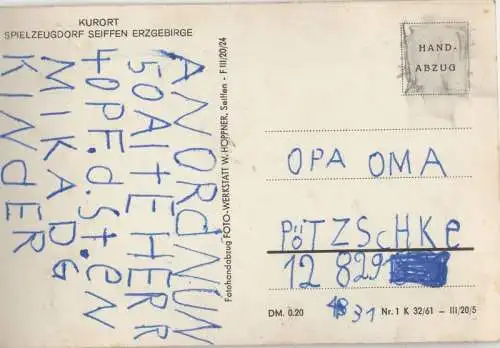 KURORT
SPIELZEUGDORF SEIFFEN ERZGEBIRGE
ANORdNUN
50 AlTEHERR
40PF.d.St.eN
MIKADG
KINdER
Fotohandabzug FOTO-WERKSTATT W. HÖPPNER, Seiffen - F III/20/24
HAND-
ABZUG
OPA OMA
PÖTZSCHKe
12 8291
DM. 0.20
31
Nr. 1 K 32/61 — III/20/5